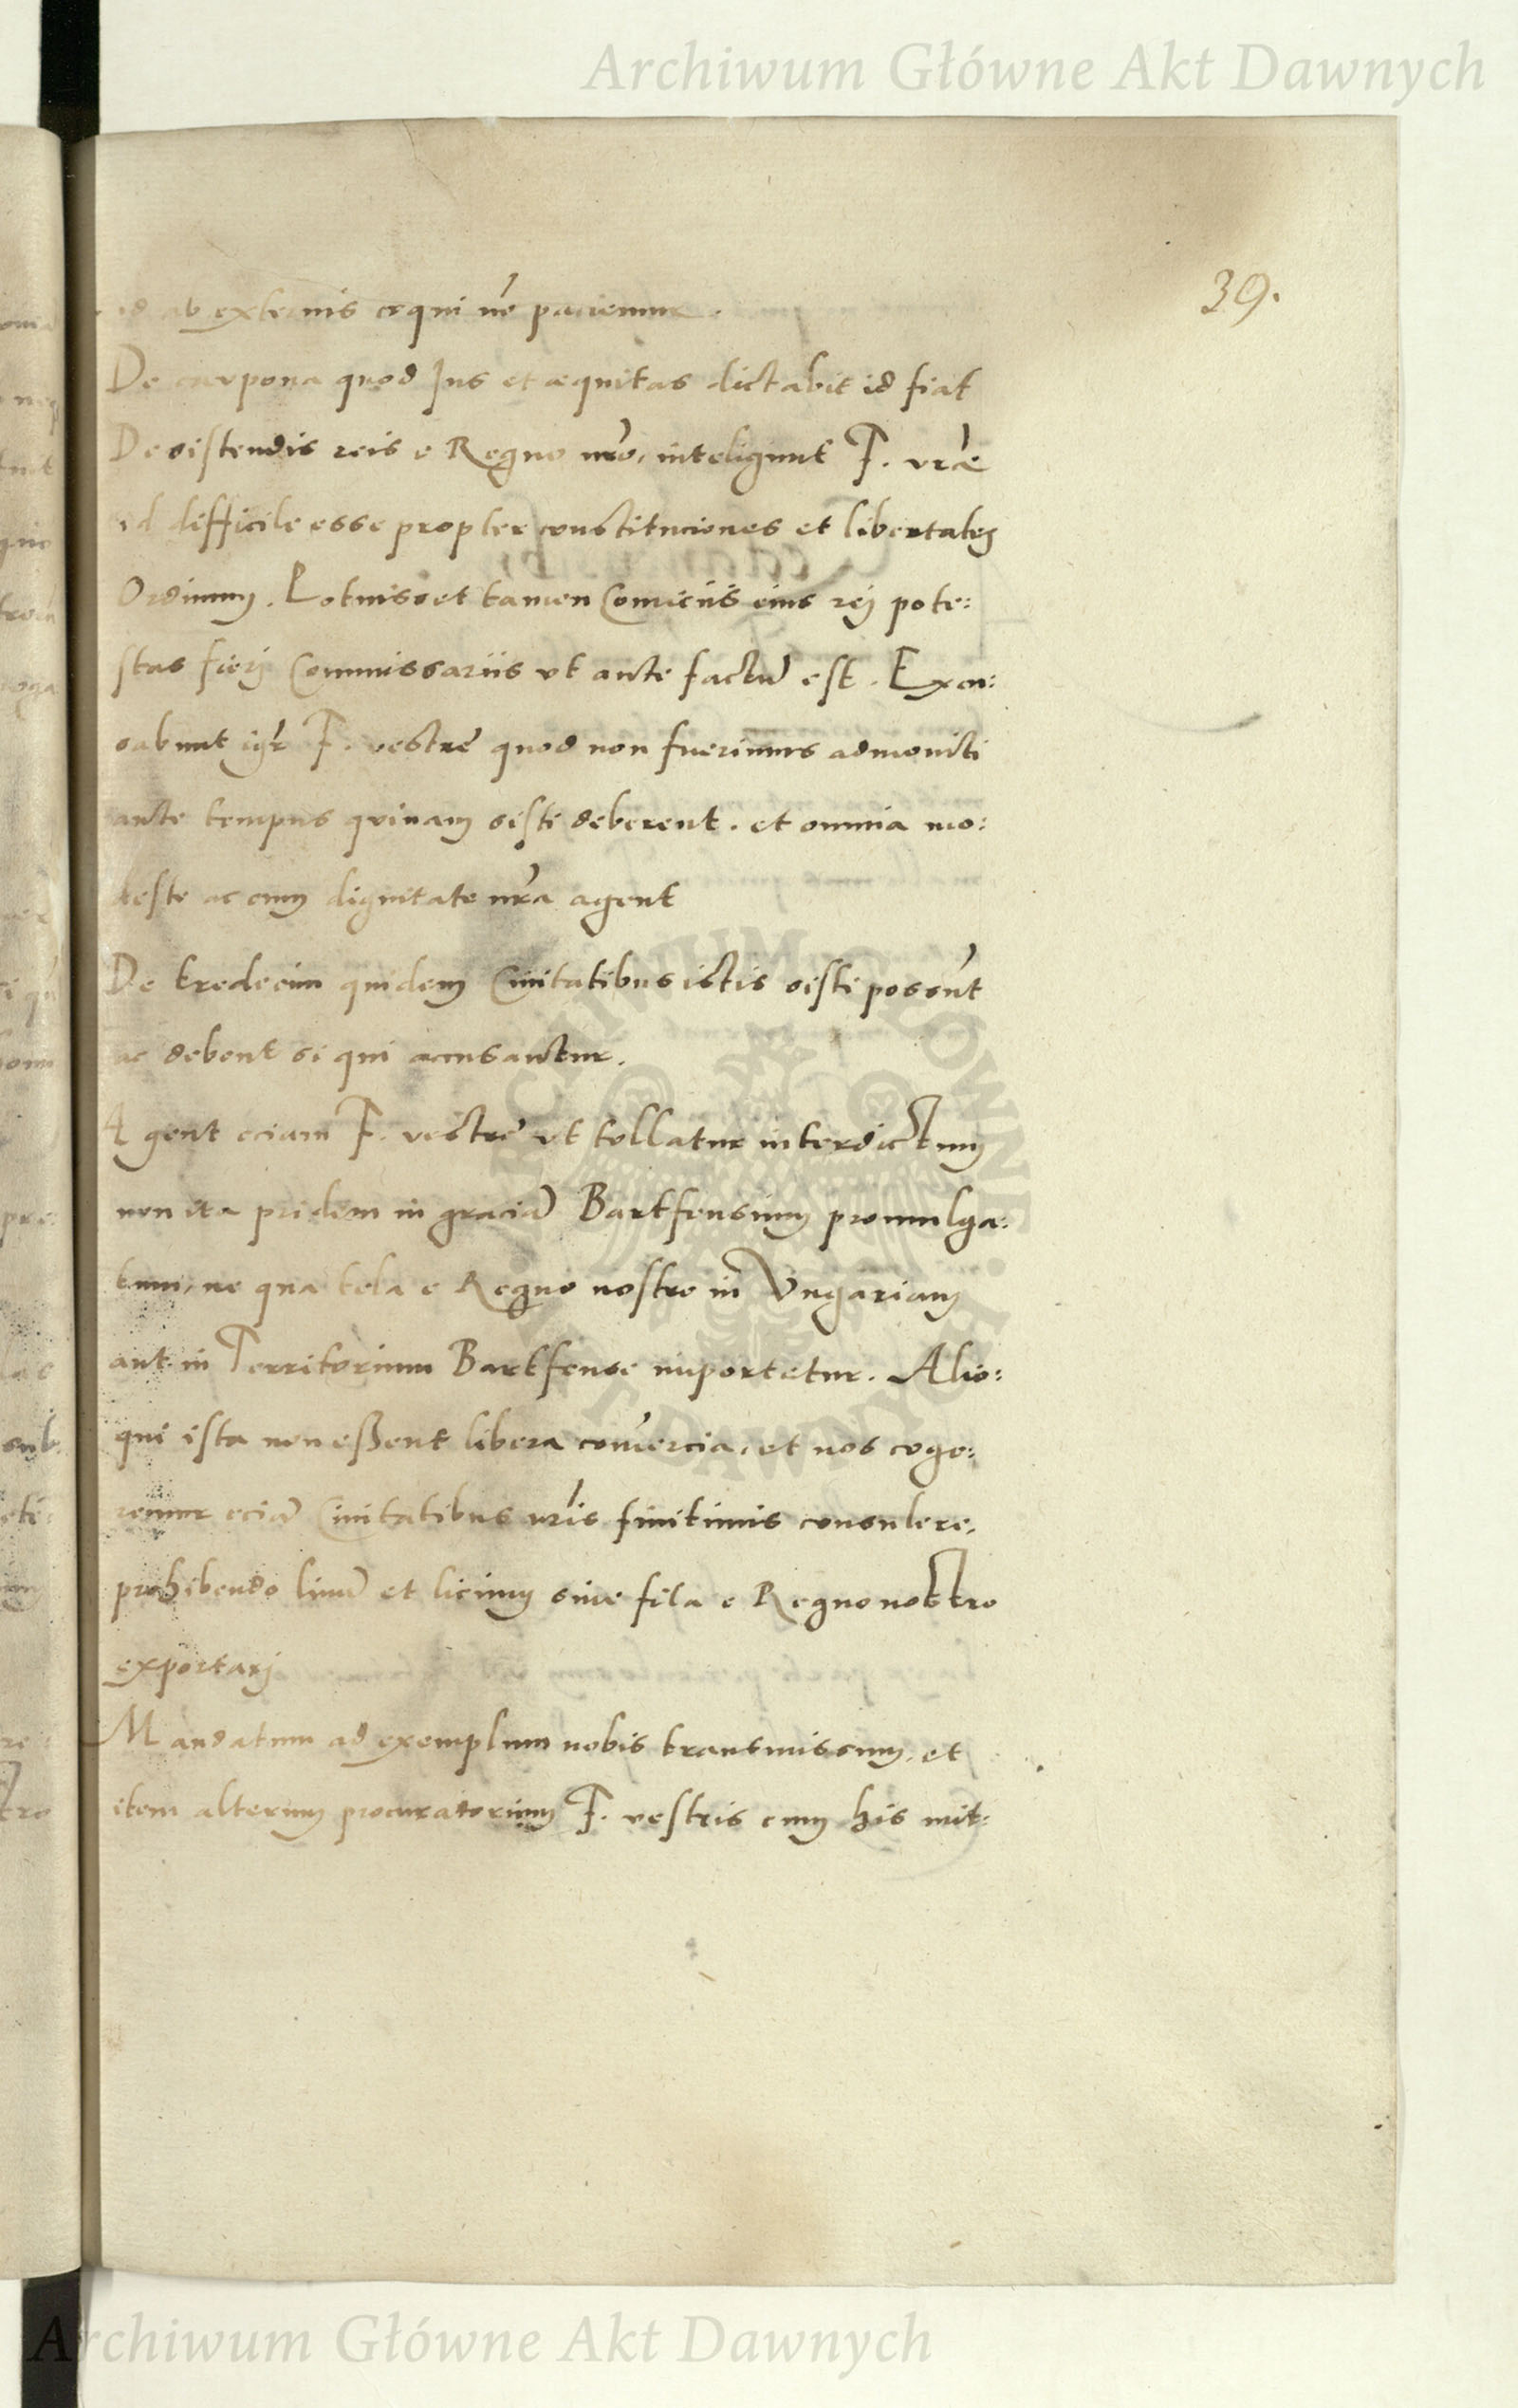 Archiwum Główne Akt Dawnych
39.
id ab externis ne paciemur.
De caupona quod Jus et aequitas dictabit id fiat
De sistendis reis e Regno nro, inteligunt F. vrae
id difficile esse propter constituciones et libertates
Ordinum. Potuisset tamen Comiciis eius rei pote:
stas fieri Commissariis vt ante factu est. Excu:
sabunt igr F. vestre quod non fuerimus admoniti
ante tempus quinam sisti deberent. et omnia mo:
deste ac cum dignitate nra agent
De tredecim quidem Civitatibus istis sisti possunt
ac debent si qui accusantur.
Agent eciam F. vestre vt tollatur interdictum
non ita pridem in gracia Bartfensium promulga:
tum, ne qua tela e Regno nostro in Vngariam
aut in Territorium Bartfense importetur. Alio:
qui ista non eßent libera comercia, et nos coge:
remur ecia Civitatibus nris finitimis consulere,
prohibendo linu et licium sive fila e Regno nostro
exportari
Mandatum ad exemplum nobis transmissum, et
item alterum procuratorium F. vestris cum his mit:
ARCHIWUM GŁÓWNE AKT DAWNYCH
Archiwum Główne Akt Dawnych